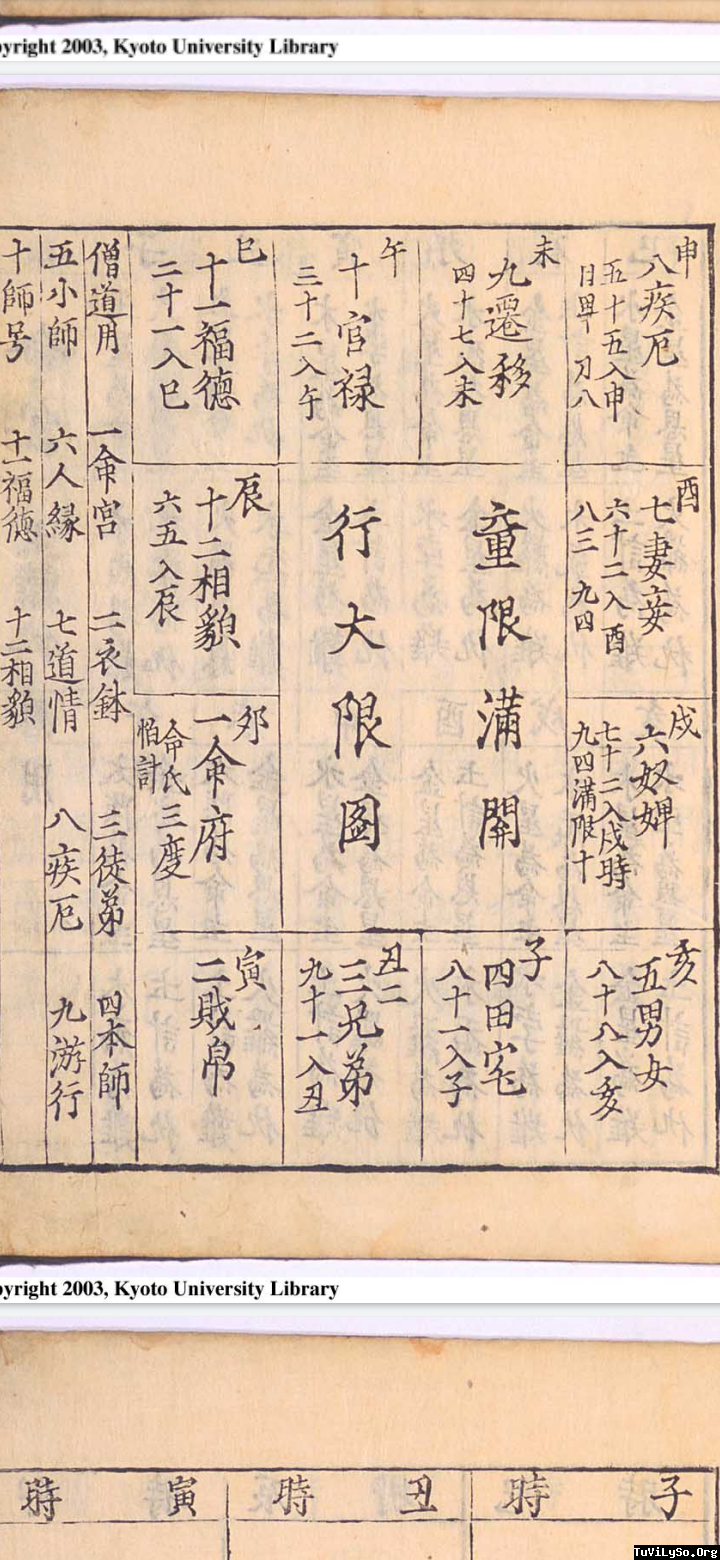 pyright 2003, Kyoto University Library
申
八疾厄
五十五入申
酉
七妻妾
六十二入酉
八三 九四
戌
六奴婢
七十二入戌時
九四滿限十
亥
五男女
八十八入亥
未
九遷移
四十七入未
午
十官禄
三十二入午
童限滿開
行大限圖
子
四田宅
八十一入子
丑二
三兄弟
九十一入丑
巳
十一福德
二十一入巳
辰
十二相貌
六五入辰
卯
一命府
命氏三度
寅
二財帛
僧道用 一命宮 二衣鉢 三徒弟 四本師
五小師 六人緣 七道情 八疾厄 九游行
十師号 十一福德 十二相貌
pyright 2003, Kyoto University Library
子 時
丑 時
寅 時
TuViLySo.Org